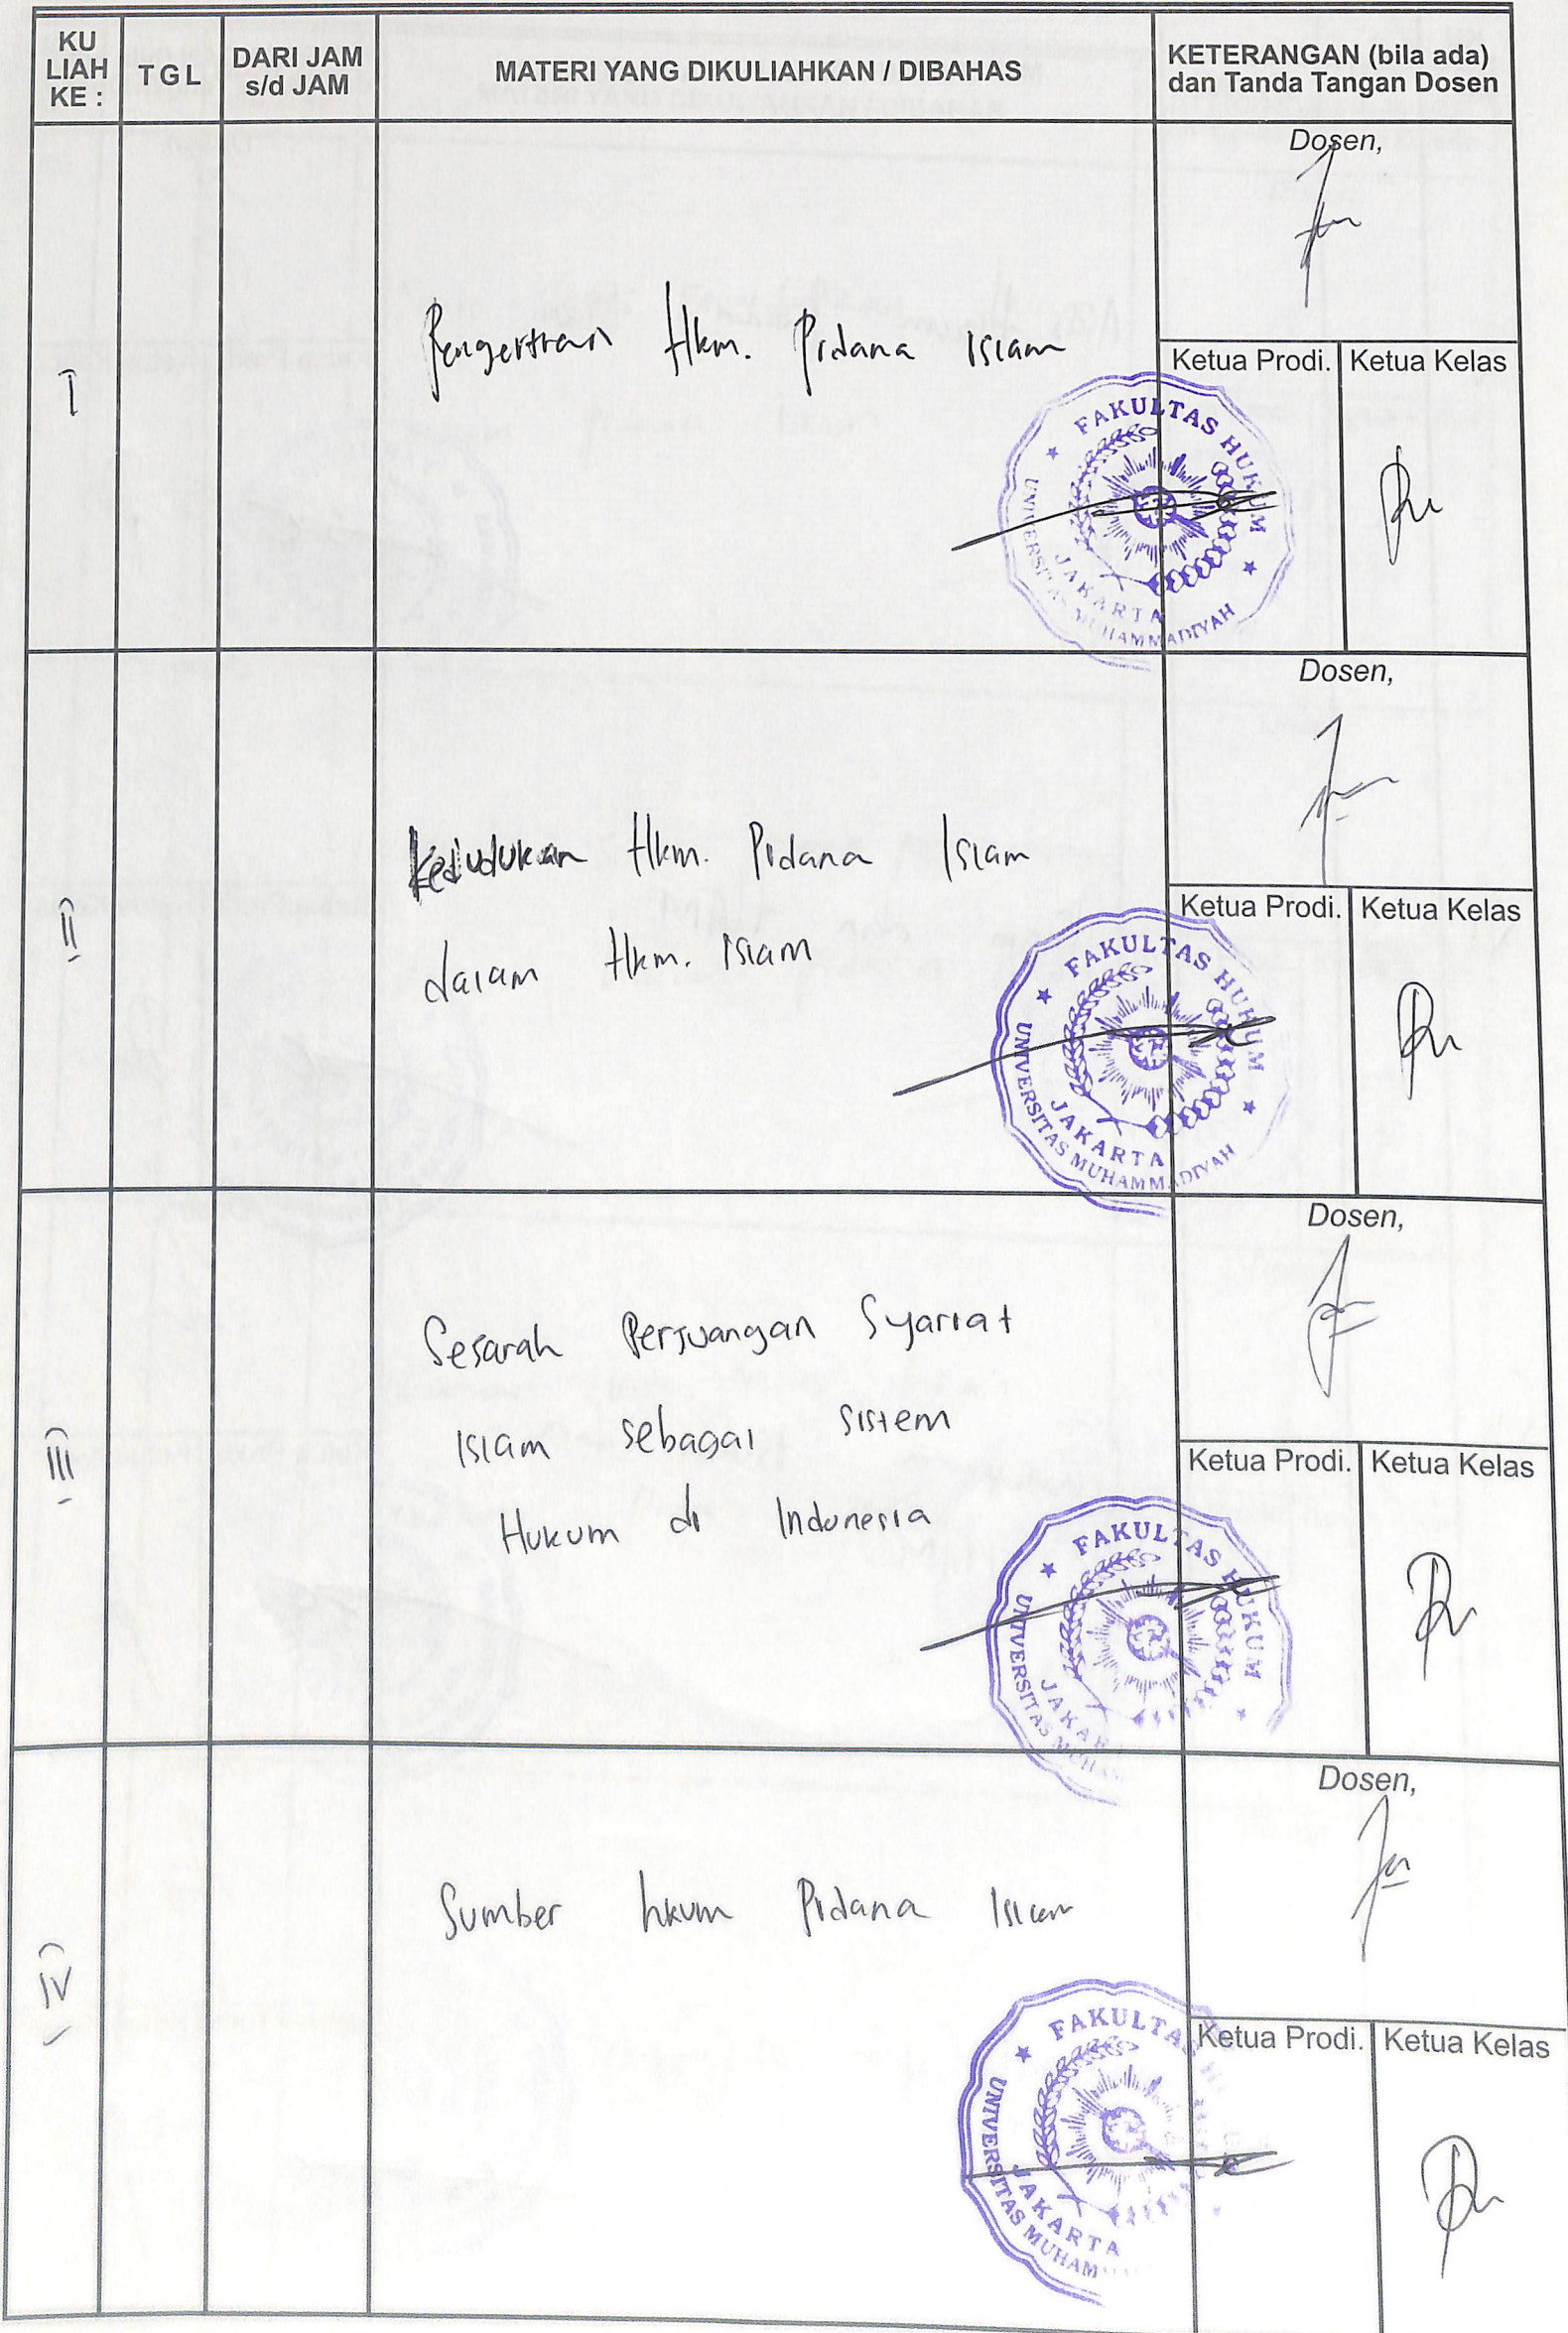 KU
LIAH
KE :
TGL
DARI JAM
s/d JAM
MATERI YANG DIKULIAHKAN / DIBAHAS
KETERANGAN (bila ada)
dan Tanda Tangan Dosen
I
Pengertian Hkm. Pidana Islam
Dosen,
Ketua Prodi.
Ketua Kelas
FAKULTAS HUKUM
UNIVERSITAS MUHAMMADIYAH
JAKARTA
II
Kedudukan Hkm. Pidana Islam
dalam Hkm. Islam
Dosen,
Ketua Prodi.
Ketua Kelas
FAKULTAS HUKUM
UNIVERSITAS MUHAMMADIYAH
JAKARTA
III
Sejarah Perjuangan Syariat
Islam sebagai sistem
Hukum di Indonesia
Dosen,
Ketua Prodi.
Ketua Kelas
FAKULTAS HUKUM
UNIVERSITAS MUHAM
JAKAR
IV
Sumber hkum Pidana Islam
Dosen,
Ketua Prodi.
Ketua Kelas
FAKULTA
UNIVERSITAS MUHAM
JAKARTA